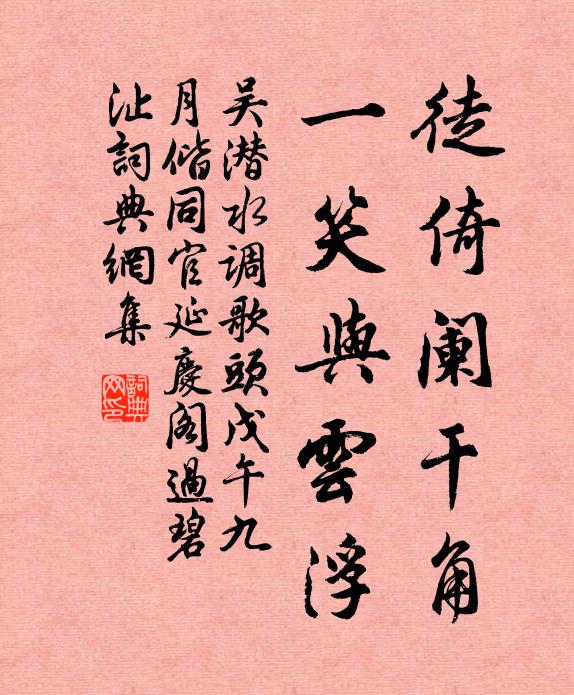 徒倚阑干角
一笑與雲浮
吴潜水调歌頭戊午九
月偕同官延慶阁過碧
沚詞典網集
詞典網印